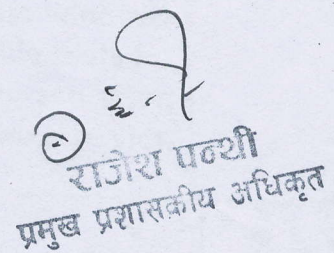 राजेश पन्थी
प्रमुख प्रशासकीय अधिकृत